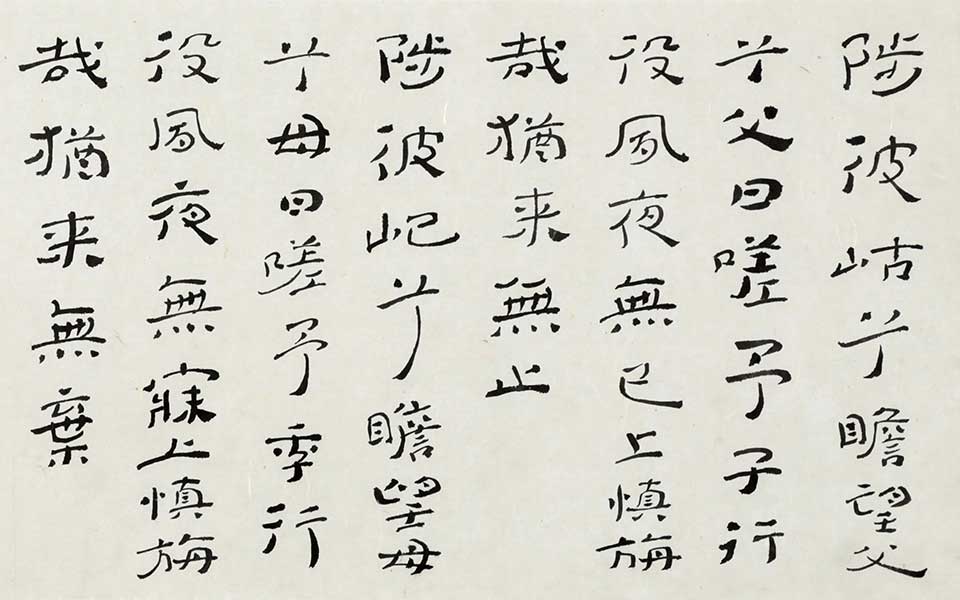 陟彼岵兮瞻望父
兮父曰嗟予子行
役夙夜無已上慎旃
哉猶来無止
陟彼屺兮瞻望母
兮母曰嗟予季行
役夙夜無寐上慎旃
哉猶来無棄